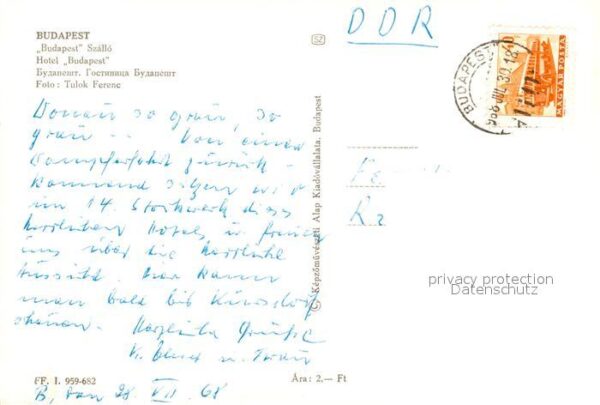 BUDAPEST
„Budapest" Szálló
Hotel „Budapest"
Будапешт. Гостиница Будапешт
Foto: Tulok Ferenc
Donau so grau, so
grau -- Von einer
Dampferfahrt zurück-
kommend sitzen wir
im 14. Stockwerk dieses
herrlichen Hotels u. freuen
uns über die herrliche
Aussicht. Hier kann
man bald bis
schauen. Herzliche Grüße
u. Frau
B, den 28. VII. 68
FF. I. 959-682
Ára: 2,— Ft
© Képzőművészeti Alap Kiadóvállalata, Budapest
SZ
DDR
BUDAPEST
MAGYAR POSTA
privacy protection
Datenschutz